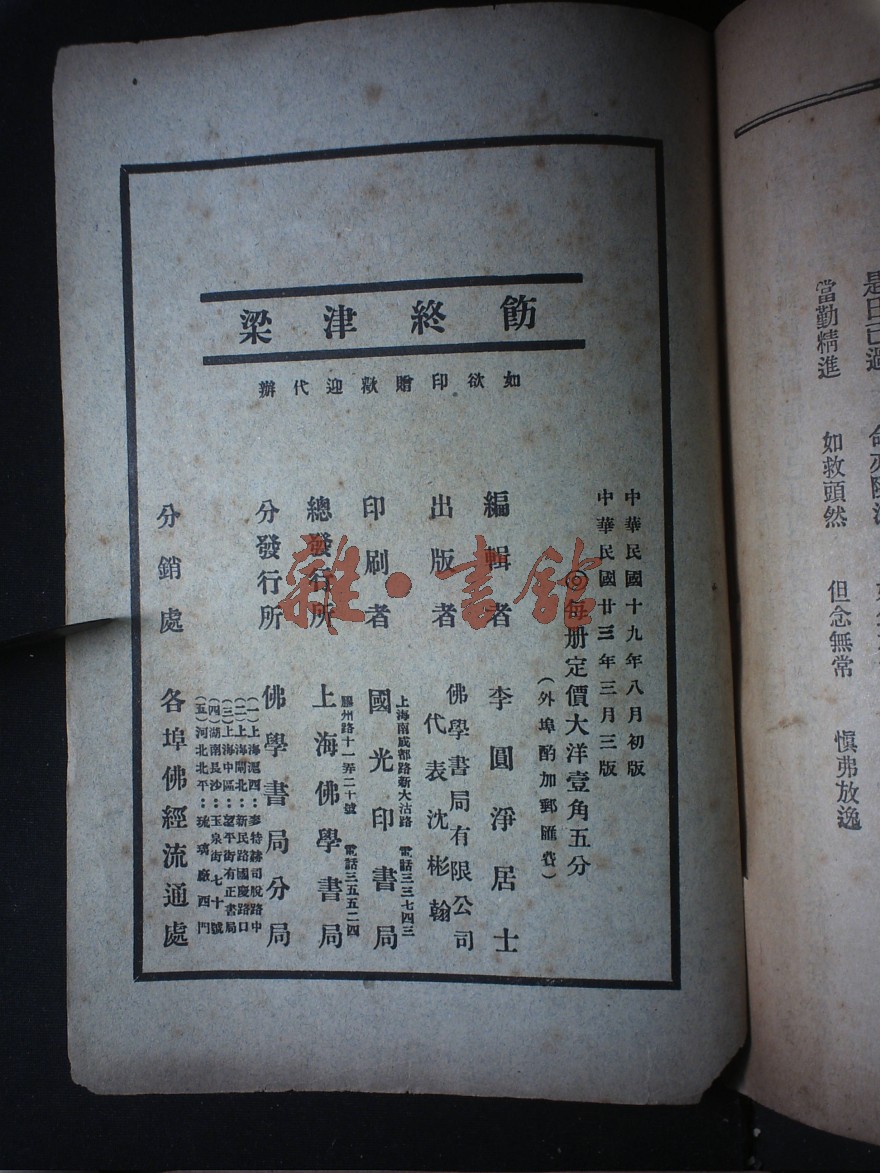 當勤精進　如救頭然　但念無常　慎弗放逸
飭終津梁
如欲印贈歡迎代辦
中華民國十九年八月初版
中華民國廿三年三月三版
◎每册定價大洋壹角五分
（外埠酌加郵匯費）
編輯者　李圓淨居士
出版者　佛學書局有限公司
代表沈彬翰
印刷者　國光印書局
上海南成都路新大沽路　電話三三七四三
總發行所　上海佛學書局
膠州路十一弄二十號　電話三五五二四
分發行所　佛學書局分局
（一）上海滬西：麥特赫司脫路中
（二）上海閘北：新民路國慶路口
（三）上海中區：望平街有正書局
（四）湖南長沙：玉泉街七十號
（五）河北北平：琉璃廠西門
分銷處　各埠佛經流通處
雜·書館